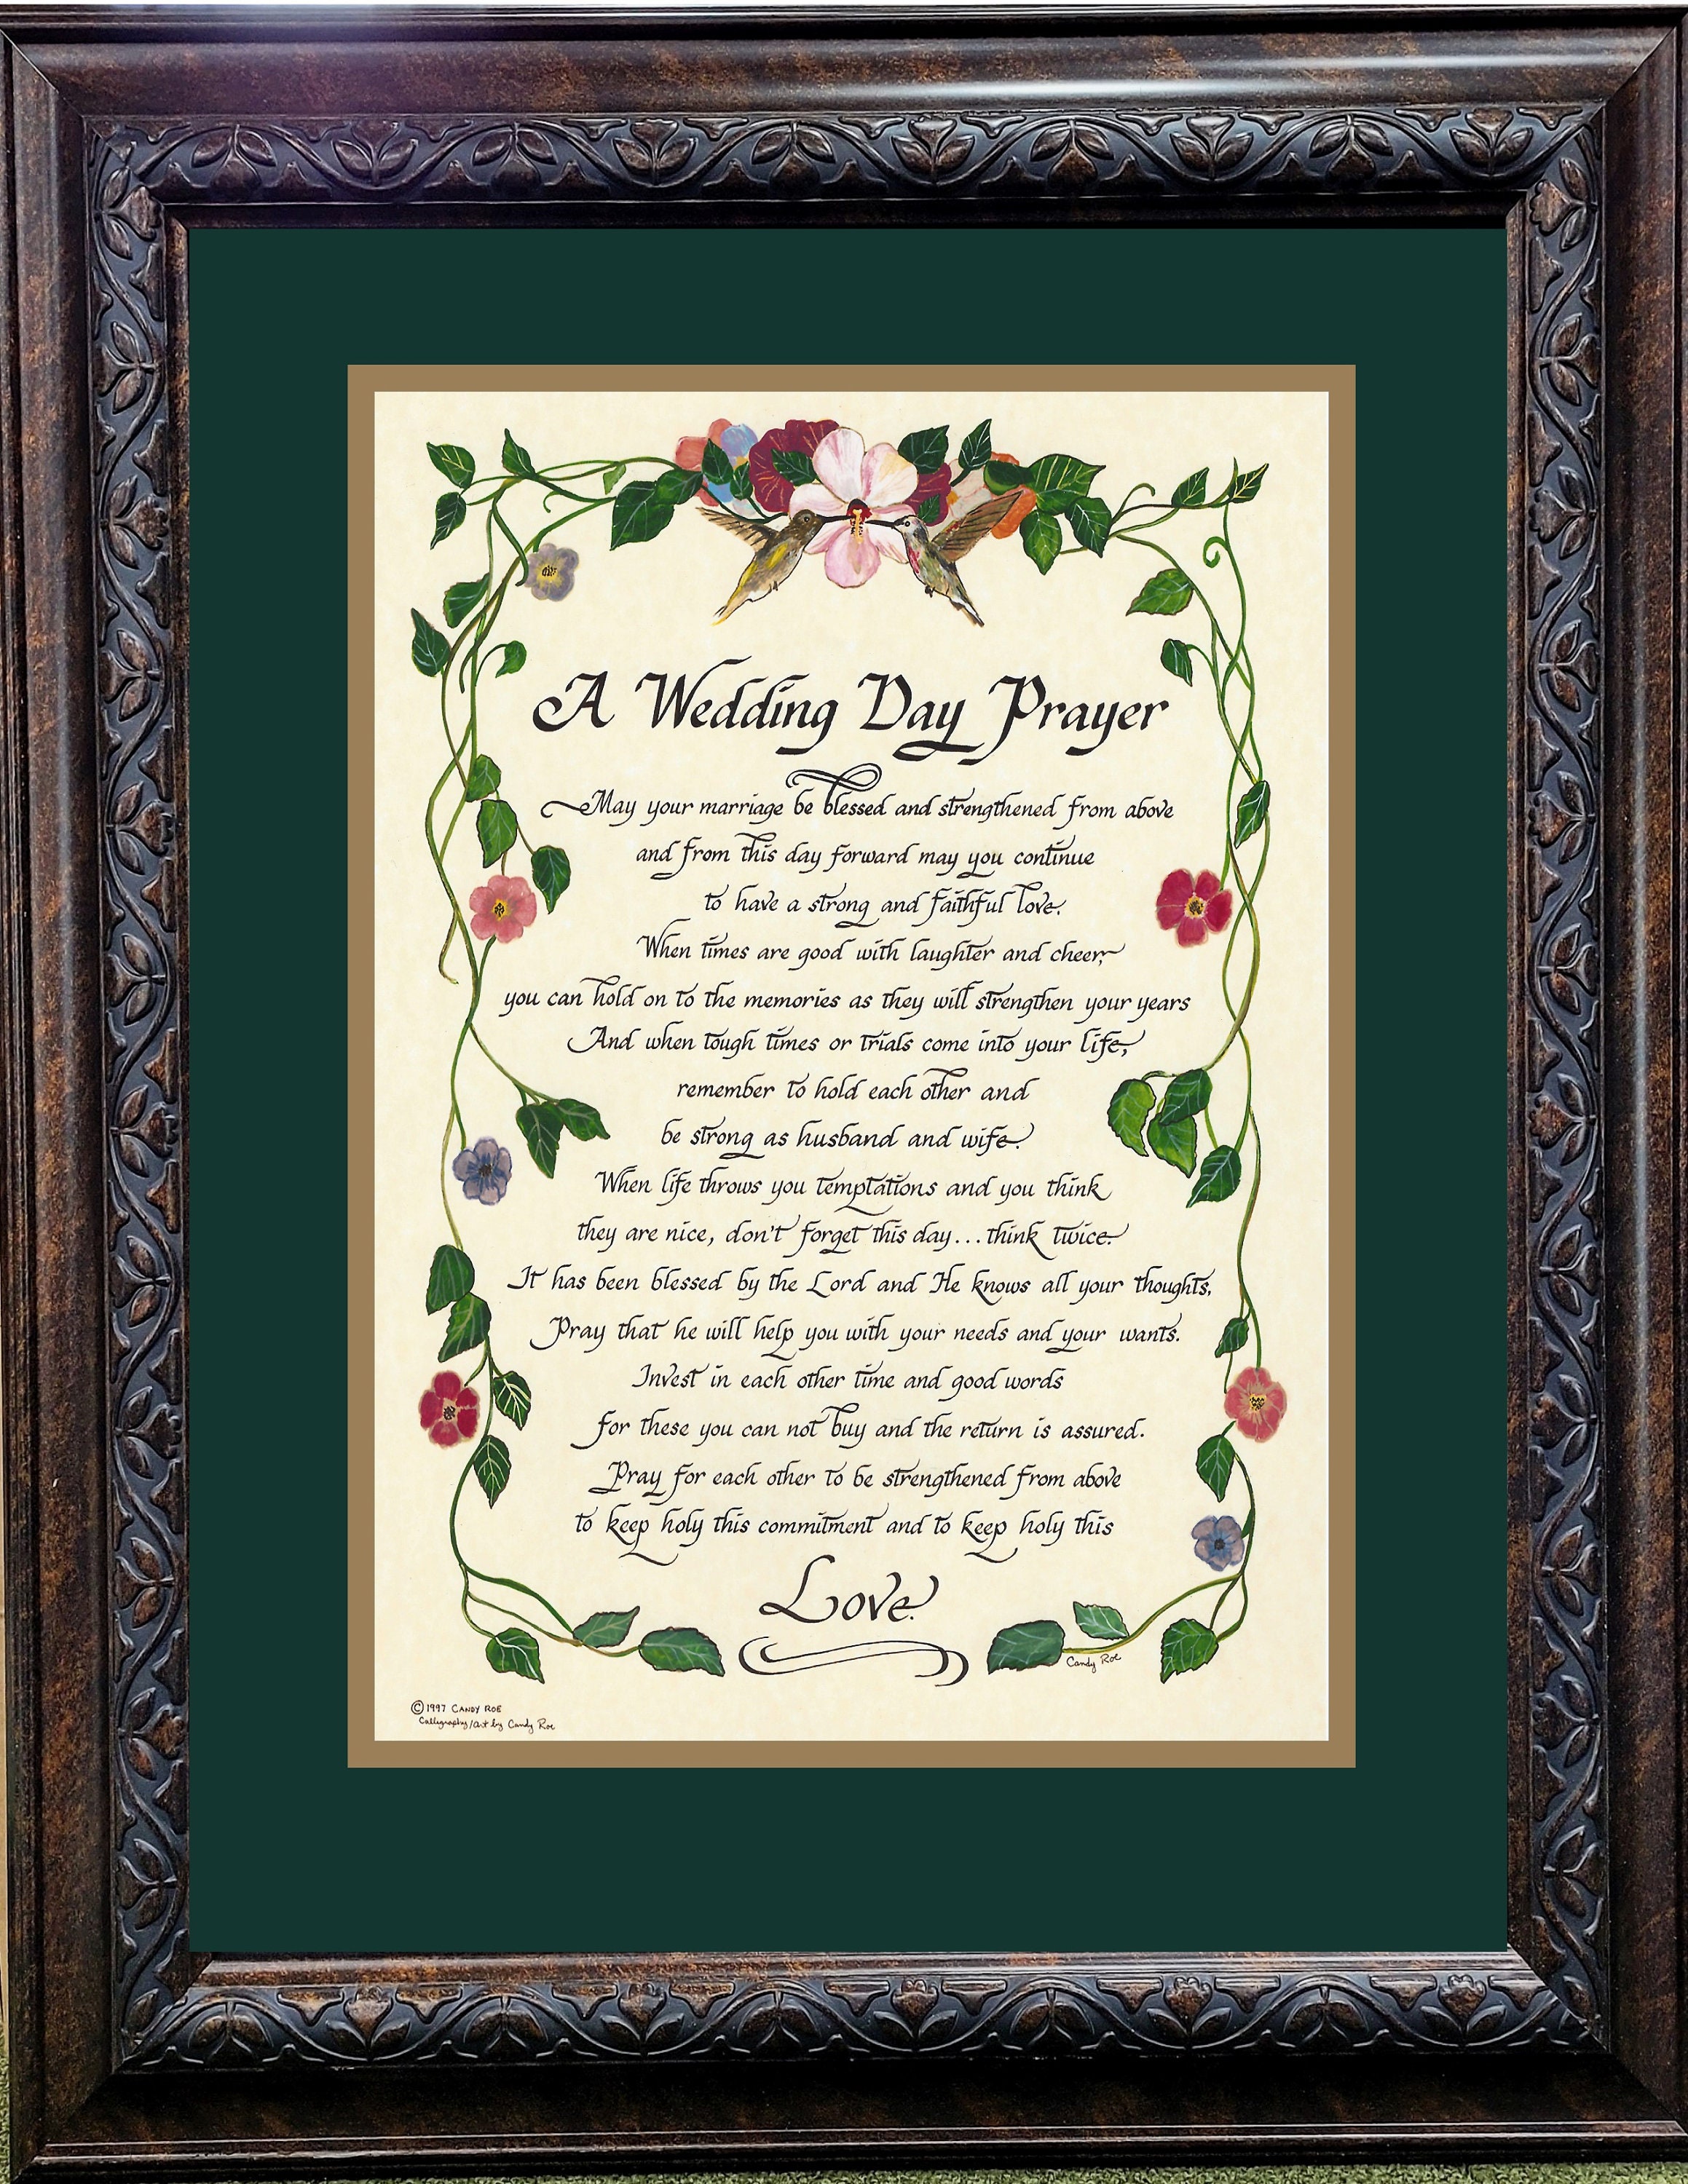 A Wedding Day Prayer
May your marriage be blessed and strengthened from above
and from this day forward may you continue
to have a strong and faithful love.
When times are good with laughter and cheer,
you can hold on to the memories as they will strengthen your years
And when tough times or trials come into your life,
remember to hold each other and
be strong as husband and wife.
When life throws you temptations and you think
they are nice, don't forget this day...think twice.
It has been blessed by the Lord and He knows all your thoughts,
Pray that he will help you with your needs and your wants.
Invest in each other time and good words
for these you can not buy and the return is assured.
Pray for each other to be strengthened from above
to keep holy this commitment and to keep holy this
Love.
Candy Roe
©1997 CANDY ROE
Calligraphy/Art by Candy Roe